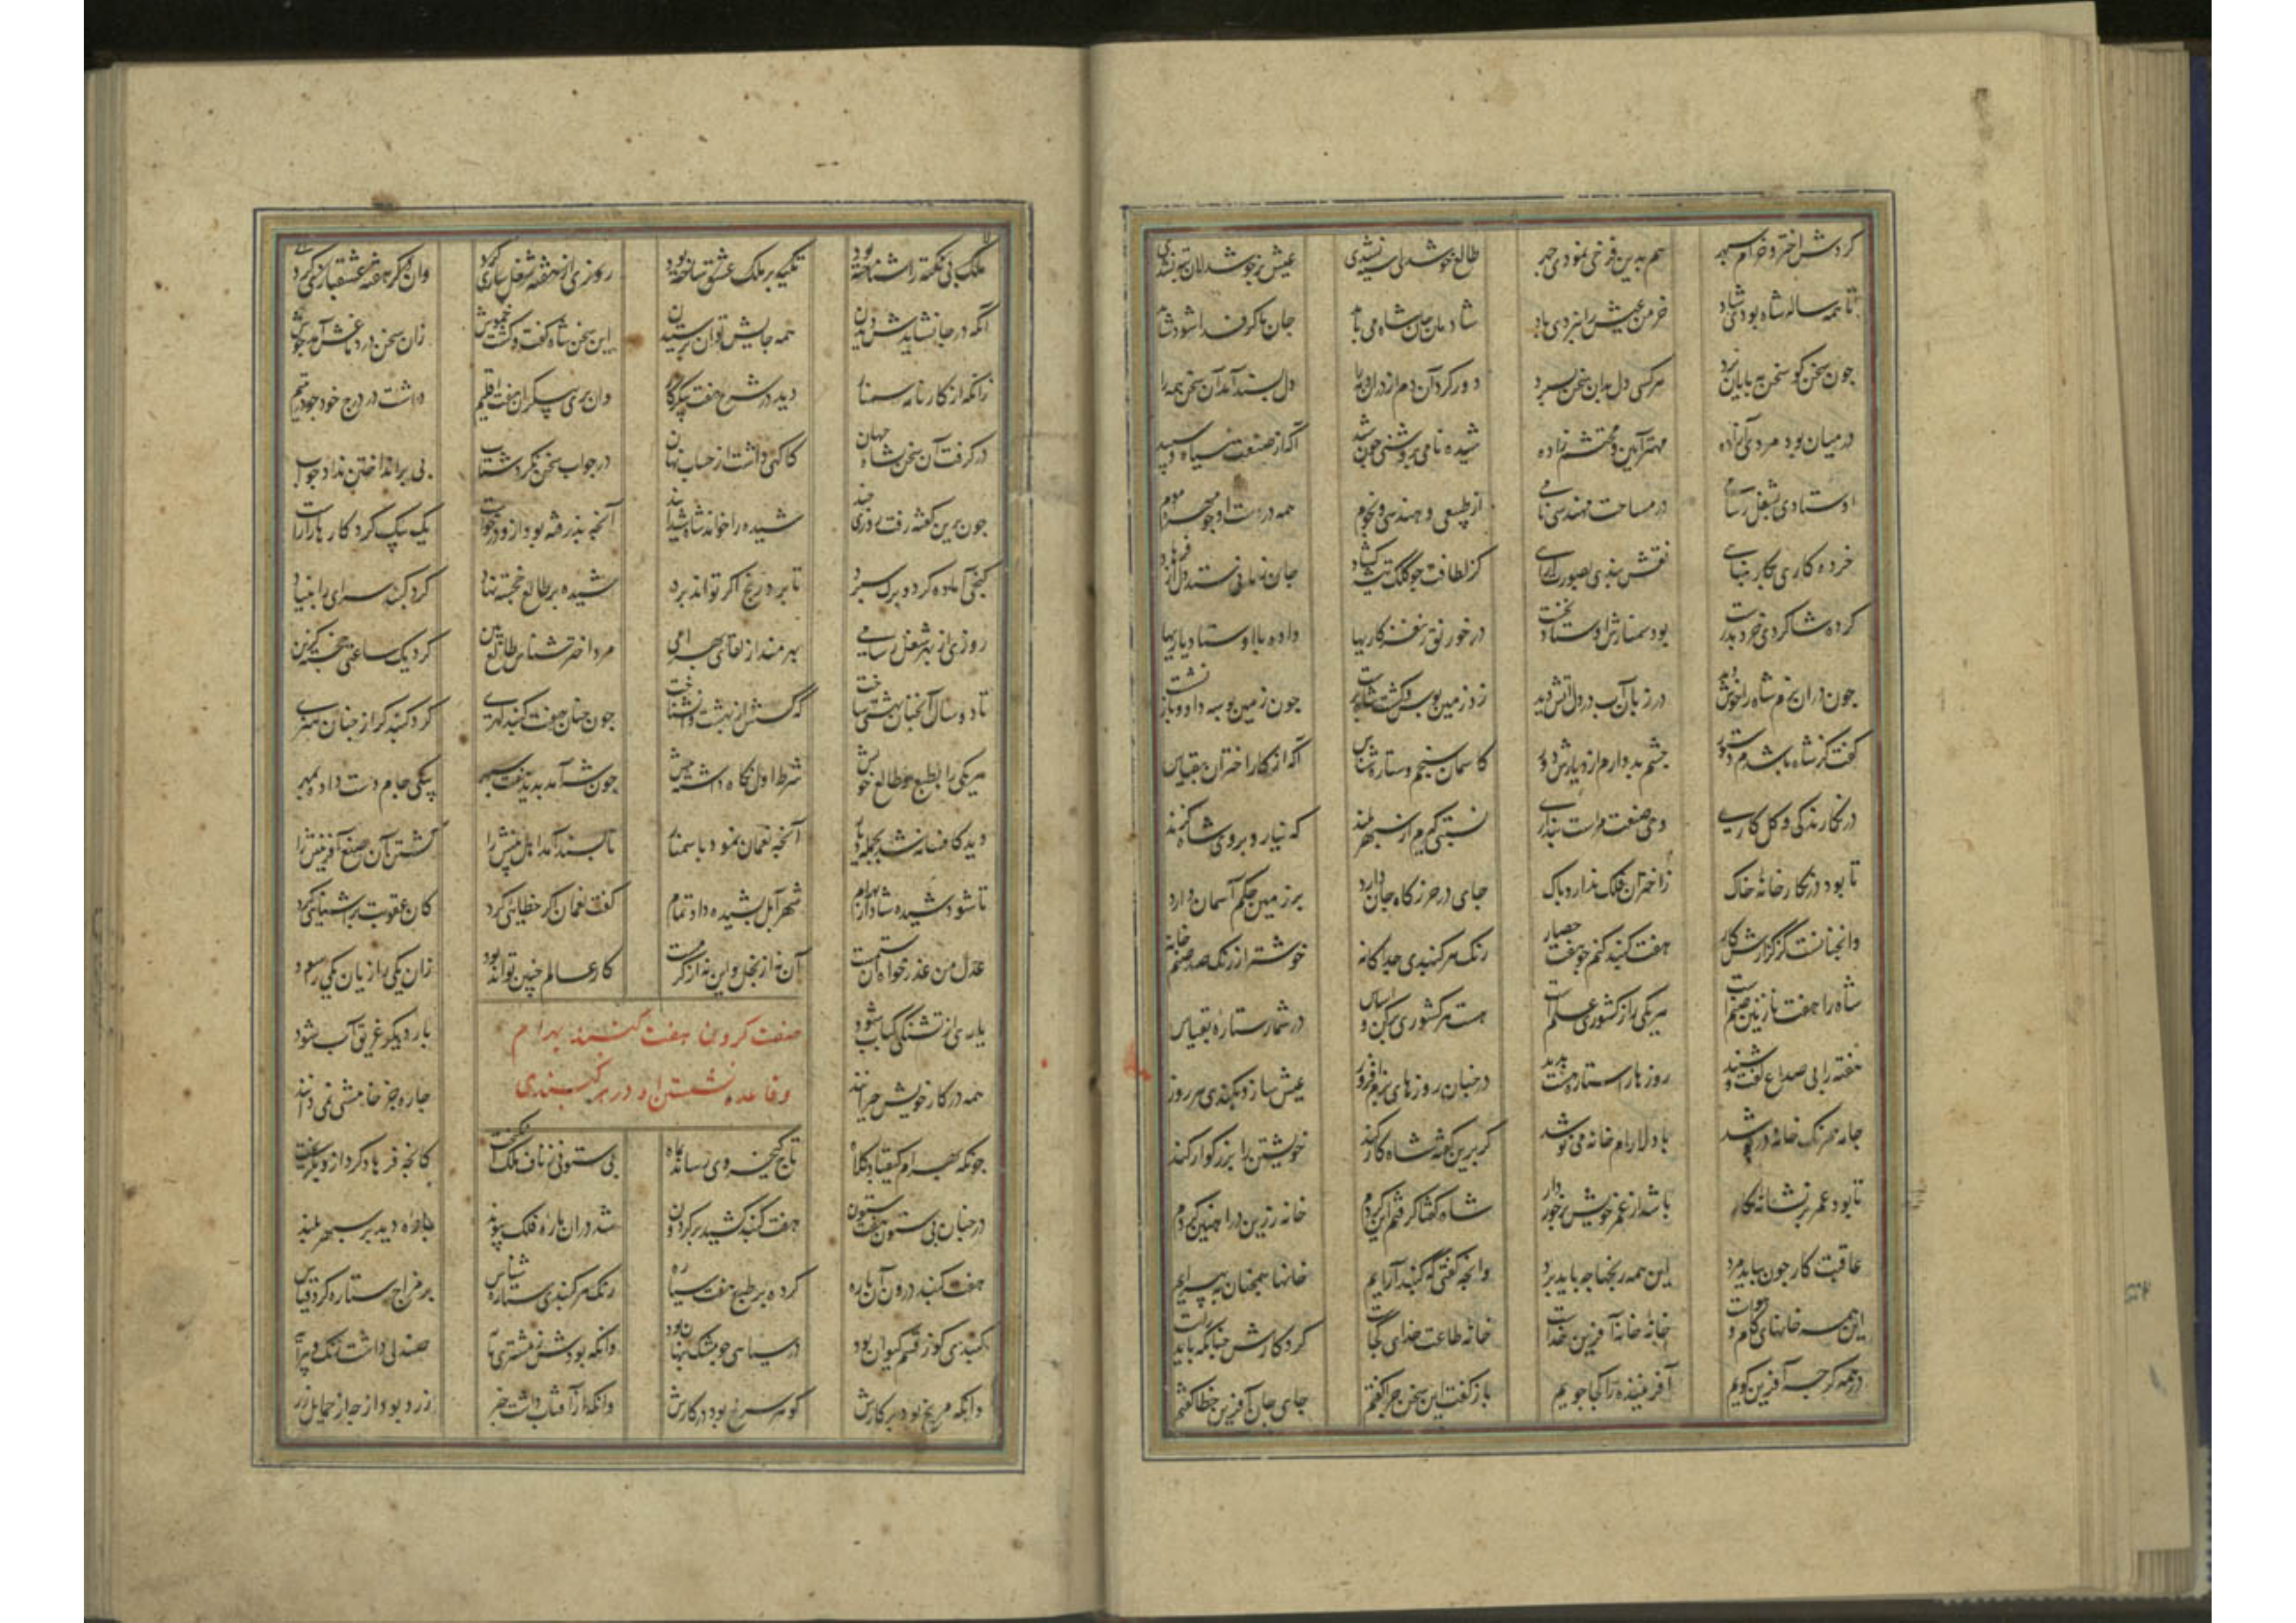 کردش اختر و خرام سپهر هم بدین فرخی نمودی چهر طالع خوشدلی نشدی عیش بر خوشدلان نشدی
تا همه ساله شاه بودی شاد خرمن عیش را نبردی باد شادمان جان شاه می باید جان ما گر فدا شود شاید
چون سخن گو سخن به پایان برد هر کسی دل بدان سخن بسپرد و ورکرد آن دم از در او دل پسند آمد آن سخن همه را
در میان بود مردی آزاده مهترآیین و محتشم زاده شیده نامی بروشنی چون شید آکه از صنعت سیاه و سپید
اوستادی بشغل رسامی در مساحت مهندسی نامی از طبیعی و هندسی و نجوم همه در دست او چو مهره موم
خرده کاری بکار بنایی نقش بندی بصورت آرایی کز لطافت چو کلک تیشه گشاد جان ز مانی ستد دل از فرهاد
کرده شاکردی خرد بدرست بود سمنارش اوستاد نخست در خورنق ز نغز کاریها داده با اوستاد یاریها
چون در آن بزم شاه را خوش دید در زبان آب و در دل آتش دید زد زمین بوس و گشت شاه پرست چون زمین بوسه داد و باز نشست
گفت کز شاه باشدم دستور چشم بد دارم از دیارش دور کاسمان سنجم و ستاره شناس آکه از کار اختران بقیاس
در نگارندگی و گل کاری وحی صنعت مراست پنداری نسبتی گیرم از سپهر بلند که نیارد بروی شاه گزند
تا بود در نگارخانه خاک ز اختران فلک ندارد باک جای در حرزگاه جان دارد بر زمین حکم آسمان دارد
وانچنانست کز گزارش کار هفت گنبد کنم چو هفت حصار رنگ هر گنبدی جداگانه خوشتر از رنگ صد صنم خانه
شاه را هفت نازنین صنمست هر یکی را ز کشوری علمست هست هر کشوری برکن و اساس در شمار ستاره بقیاس
هفته را بی صداع گفت و شنید روزها را ستاره هست پدید در چنان روزهای بزم افروز عیش سازد بگنبدی هر روز
جامه همرنگ خانه در پوشد با دلارام خانه می نوشد گر برین گفته شاه کار کند خویشتن را بزرگوار کند
تا بود عمر بر نشانه کار باشد از عمر خویش برخوردار شاه گفتا گرفتم این کردم خانه زرین در آهنین کردم
عاقبت کار چون بباید مرد این همه رنجها چه باید برد وانچه گفتی که گنبد آرایم خانها همچنان بپیرایم
این همه خانهای کام و هواست خانه خانه آفرین کجاست خانه طاعت خدای کجا
در همه گرچه آفرین گویم آفریننده را کجا جویم باز گفت این سخن چرا گفتم جای جای آفرین خطا گفتم
آنکه در جا نشایدش دیدن همه جایش توان پرستیدن این سخن شاه گفت و گشت خموش زان سخن در دماغش آمد جوش
زانکه از کارنامه سمنار دید در شرح هفت پیکر کار وان پری پیکران هفت اقلیم داشت در درج خود چو در یتیم
در گرفت آن سخن بشاه جهان کاگهی داشت از حساب نهان در جواب سخن نکرد شتاب بی برانداختن نداد جواب
چون برین گفته رفت روزی چند شیده را خواند شاه شیدا بند آنچه پذرفته بود ازو درخواست یک بیک کرد کارها را راست
گنجی آماده کرد و برگ سپرد تا برد رنج اگر تواند برد شیده بر طالع خجسته نهاد کرد گنبد سرای را بنیاد
مرد اخترشناس طالع بین کرد یک ساعتی خجسته گزین
تا دو سال آنچنان بهشتی ساخت که کسش از بهشت وا نشناخت چون چنان هفت گنبد گهری کرد گنبدگری چنان هنری
هر یکی را بطبع و طالع خویش شرط اول نگاه داشت ز پیش چون شه آمد بدید هفت سپهر بیکی جام دست داده بمهر
دید کافسانه شد بجمله دیار آنچه نعمان نمود با سمنار ناپسند آمد اهل بینش را کشتن آن صنع آفرینش را
تا شود شیده شاد ازو بهرام شهر آمل بشیده داد تمام گفت نعمان اگر خطایی کرد کان عقوبت بر آشنایی کرد
عدل من عذر خواه آن ستمست آن نه از بخل و این نه از کرمست کار عالم چنین تواند بود زان یکی را زیان یکی را سود
یاری از تشنگی کباب شود یار دیگر غریق آب شود
صفت کردن هفت گنبد بهرام
همه در کار خویش حیرانند چاره جز خامشی نمی دانند
و قاعده نشستن او در هر گنبدی
چونکه بهرام کیقباد کلاه تاج کیخسروی رساند بماه بی ستونی ز ناف ملک انگیخت کانچه فرهاد کرد ازو بگریخت
در چنان بی ستون هفت ستون هفت گنبد کشید بر گردون شد در آن باره فلک پیوند باره دید بر سپهر بلند
هفت گنبد درون آن باره کرده بر طبع هفت سیاره رنگ هر گنبدی ستاره شناس بر مزاج ستاره کرد قیاس
گنبدی کو ز قسم کیوان بود در سیاهی چو مشک پنهان بود وانکه بودش ز مشتری مایه صندلی داشت رنگ و پیرایه
وانکه مریخ بود پرگارش گوهر سرخ بود در کارش وانکه از آفتاب داشت خبر زرد بود از چه از حمایل زر